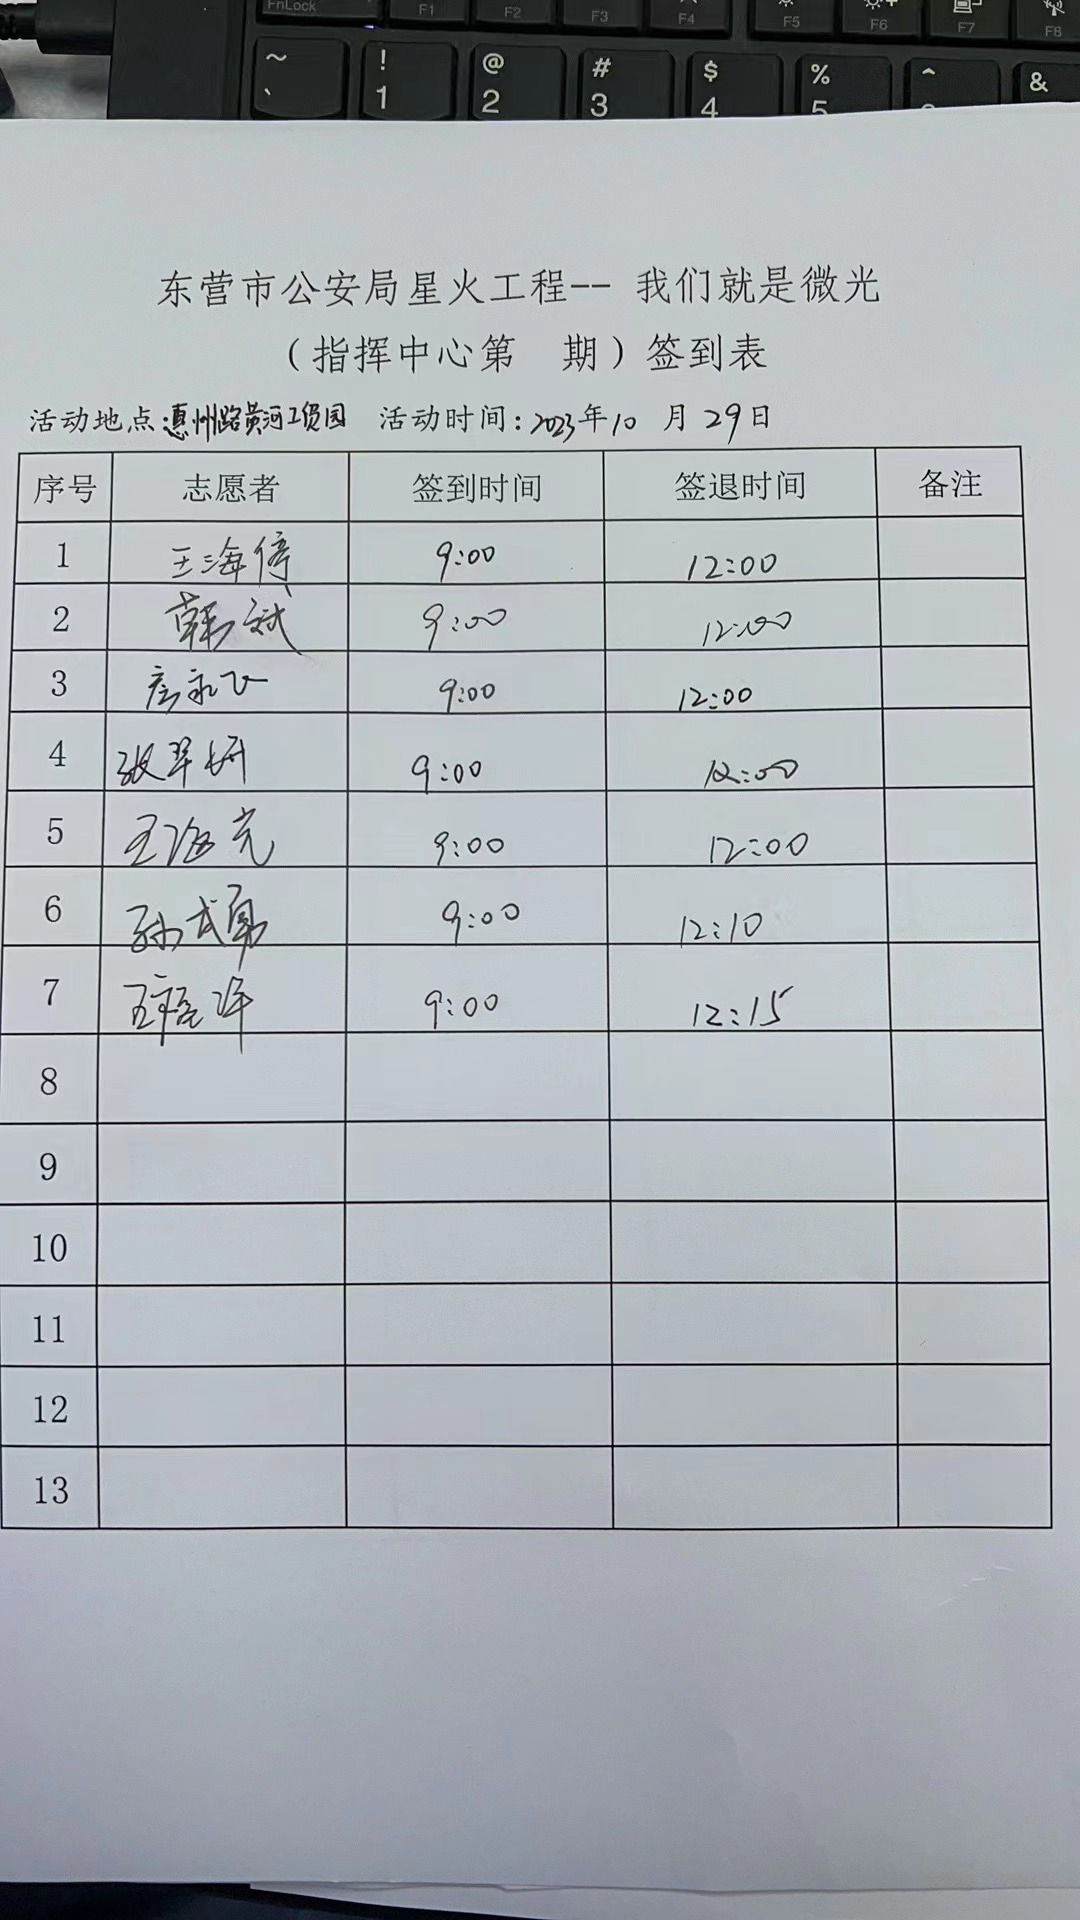 FnLock F1 F2 F3 F4 F5 F6 F7 F8
~ ` ! 1 @ 2 # 3 $ 4 % 5 ^ &
东营市公安局星火工程-- 我们就是微光
(指挥中心第 期)签到表
活动地点:惠州路黄河工贸园 活动时间:2023年10月29日
序号 志愿者 签到时间 签退时间 备注
1 王海停 9:00 12:00
2 韩斌 9:00 12:00
3 9:00 12:00
4 张翠妍 9:00 12:00
5 王海亮 9:00 12:00
6 孙武勇 9:00 12:10
7 9:00 12:15
8
9
10
11
12
13